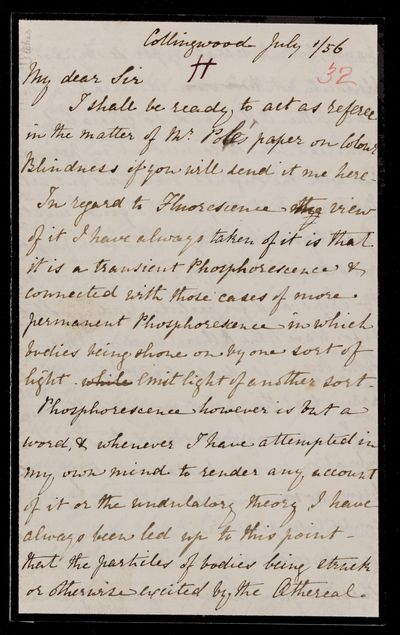 Collingwood July 1/56
H 32
My dear Sir
I shall be ready to act as referee
in the matter of Mr. Pole's paper on Colour
Blindness if you will send it me here -
In regard to Fluorescence the view
of it I have always taken of it is that
it is a transient Phosphorescence &
connected with those cases of more
permanent Phosphorescence in which
bodies being shone on by one sort of
light while emit light of another sort -
Phosphorescence however is but a
word, & whenever I have attempted in
my own mind to render any account
of it or the undulatory theory I have
always been led up to this point -
that the particles of bodies being struck
or otherwise excited by the Æthereal